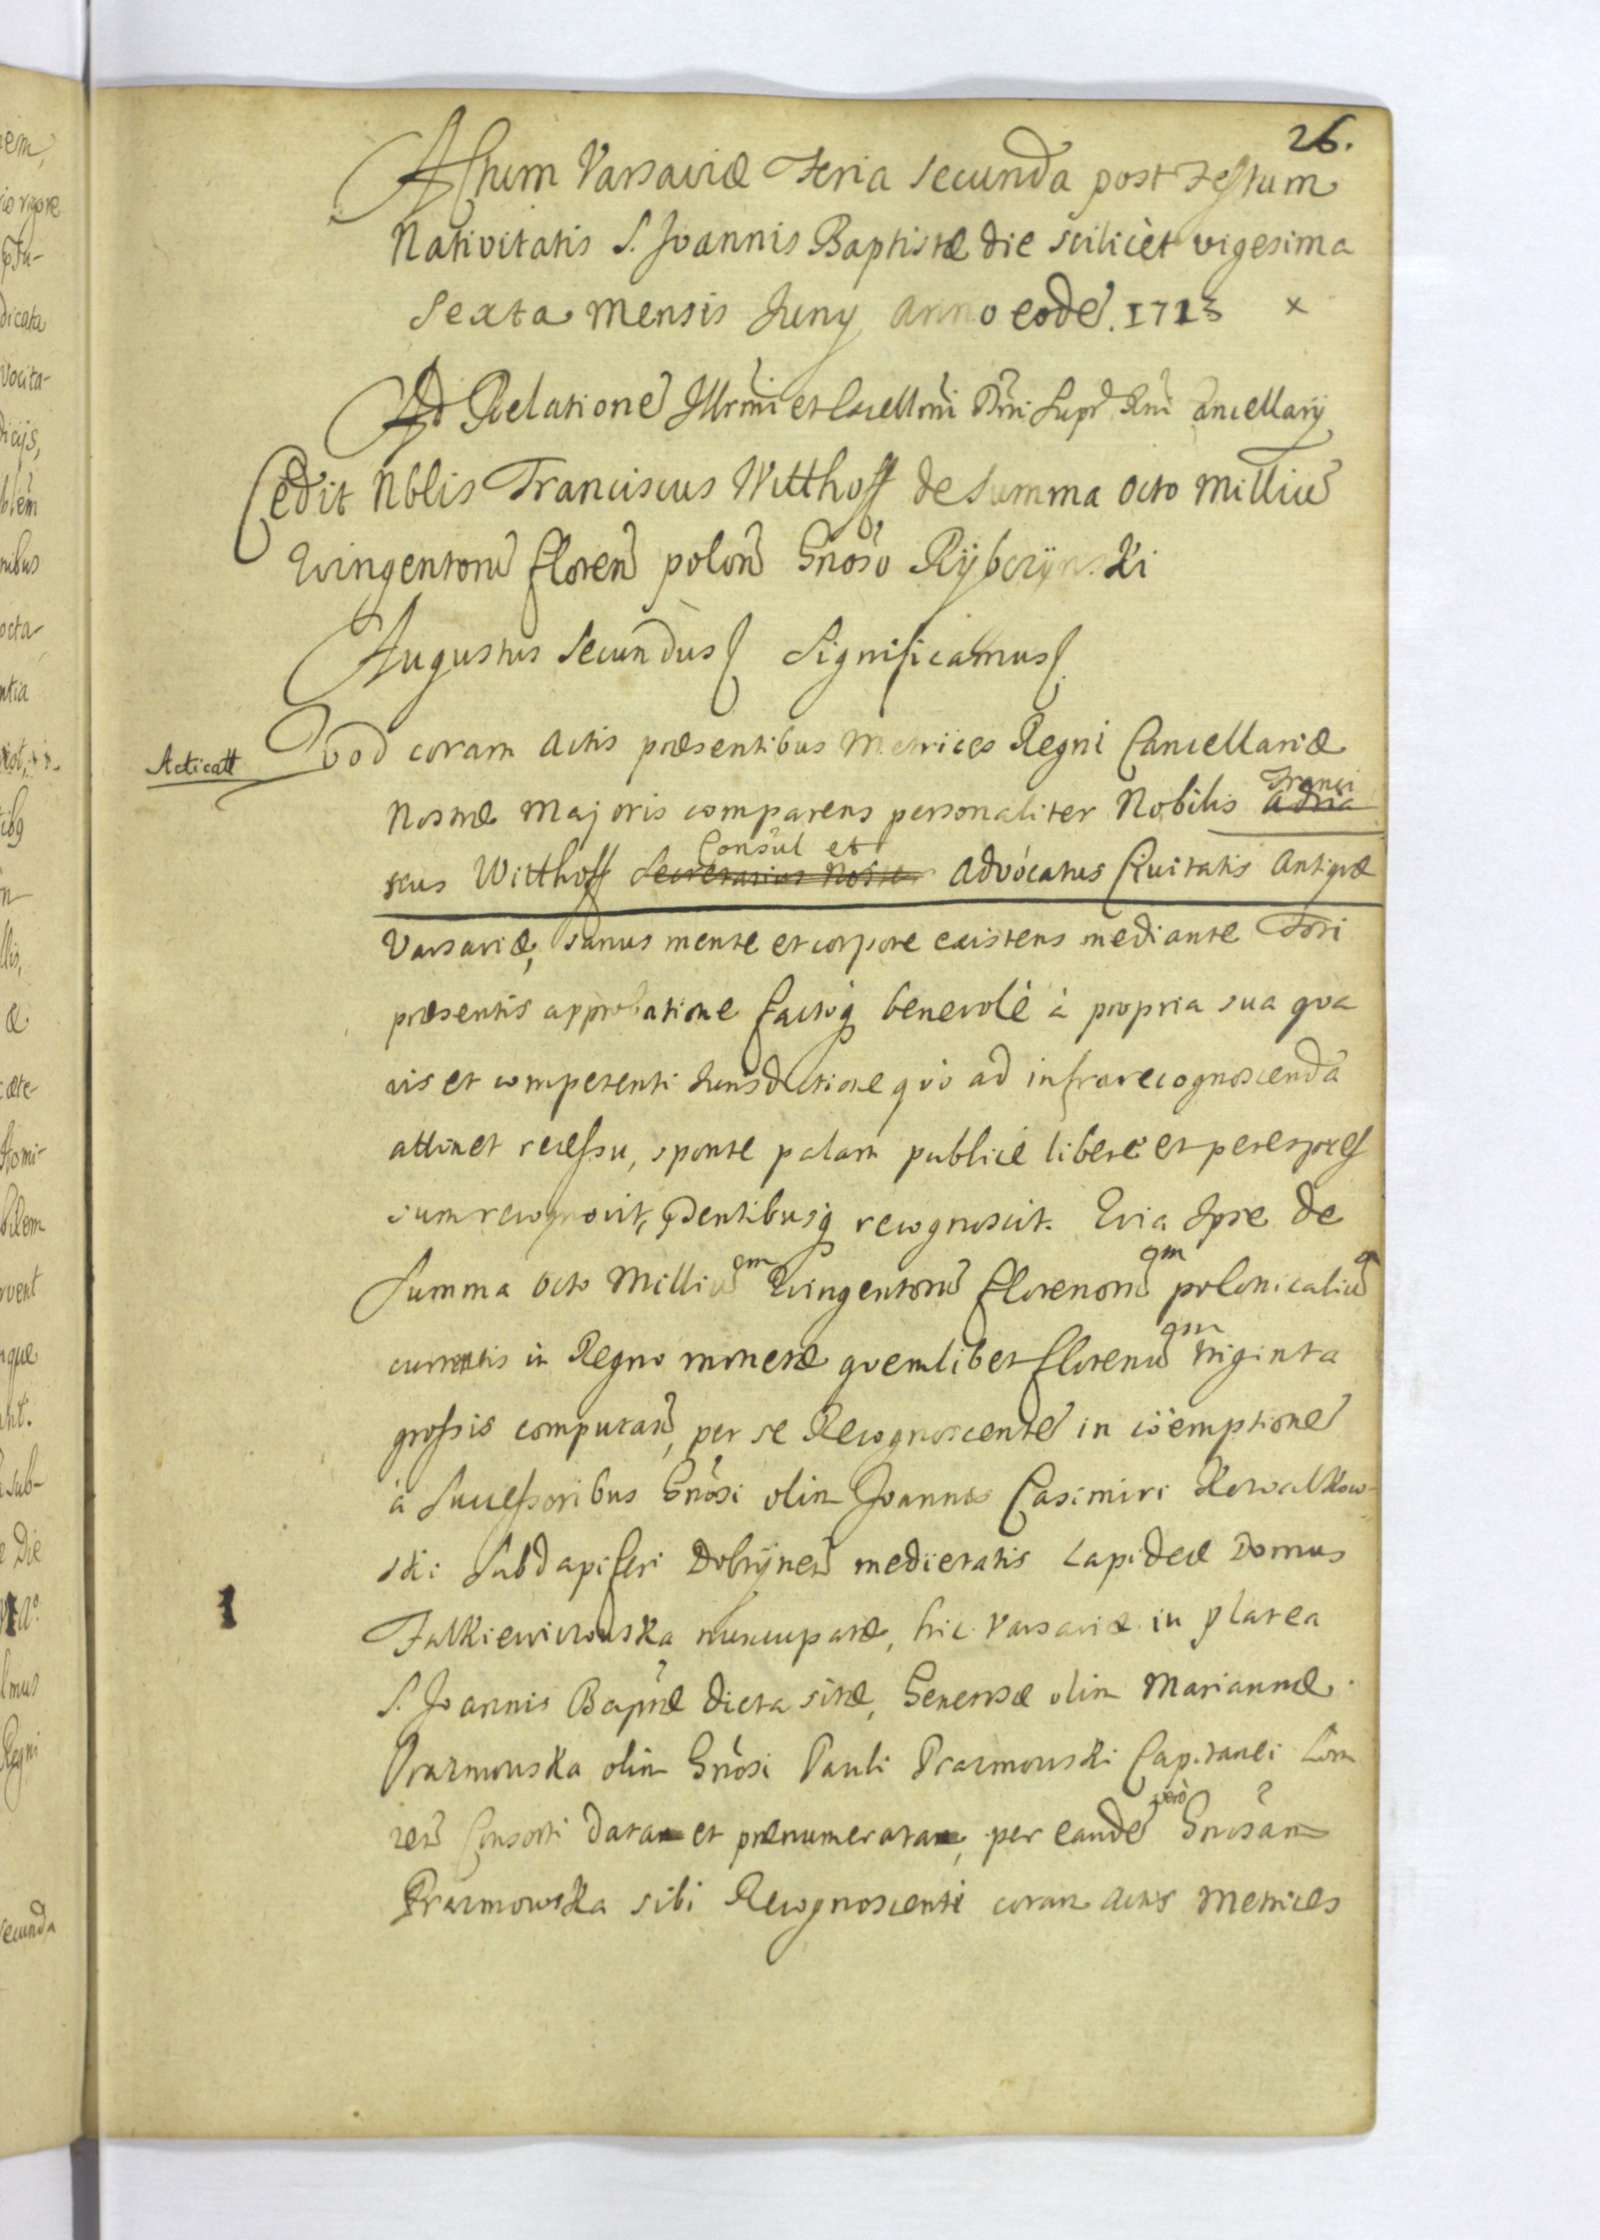 26.
Actum Varsaviæ Feria secunda post Festum
Nativitatis S. Joannis Baptistæ die scilicèt vigesima
Sexta mensis Juny anno eodē. 1713 x
Ad Relationē Illrmi et Excellmi Dni Supr Rni Cancellarij
Cedit Nblis Franciscus Witthoff de Summa octo milliū
Quingentorū florenū polon̄ Gnoso Rÿbczÿnski
Augustus Secundus Significamus
Acticatt
Quod coram Actis præsentibus Metrices Regni Cancellariæ
Nostræ Majoris comparens personaliter Nobilis Adria Franci
scus Witthoff Secretarius Noster Consul et Advocatus Civitatis Antiqvæ
Varsaviæ, sanus mente et corpore existens mediante Fori
præsentis approbatione factoq benevolè à propria sua qva
vis et competenti Jurisdictione qvò ad infrarecognoscenda
attinet recessu, sponte palam publicè liberè et per expres
sum recognovit, pdentibusq recognoscit. Qvia Ipse de
Summa octo Milliū Qvingentorū florenorū polonicaliū
currentis in Regno monetæ qvemlibet florenū triginta
grossis computan̄, per se Recognoscentē in coëmptionē
à Successoribus Gnosi olim Joannis Casimiri Kowalkow
ski Subdapiferi Dobrÿnen̄ medietatis Lapideæ Domus
Falkiewiczowska nuncupatæ, hic Varsaviæ in platea
S. Joannis Baptæ dicta sitæ, Generosæ olim Mariannæ
Prazmowska olim Gnosi Pauli Prazmowski Capitanei Lom
zen̄ Consorti data et prænumerata, per eandē verò Gnosam
Prazmowska sibi Recognoscenti coram Actis Metrices